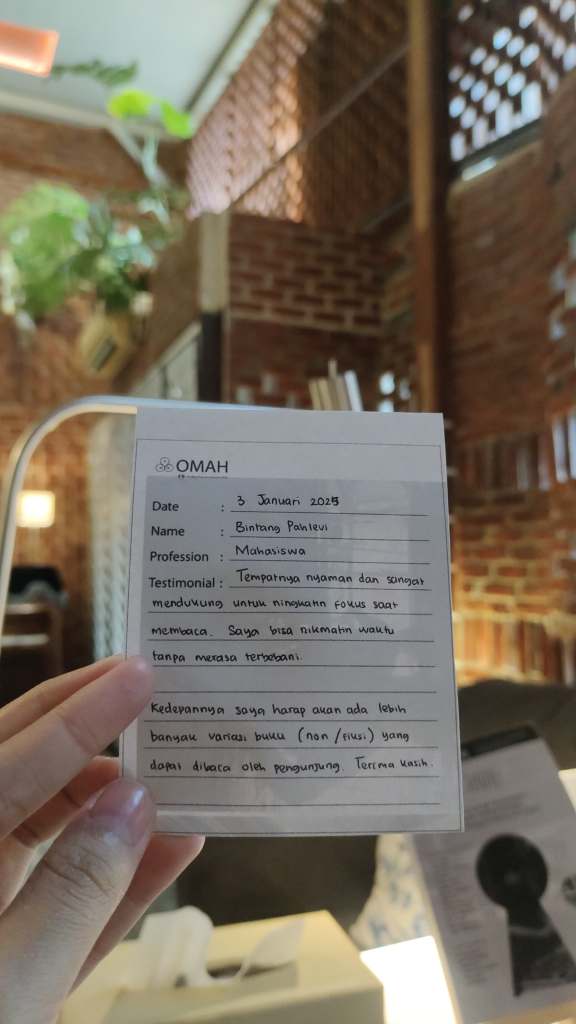 OMAH
Date : 3 Januari 2025
Name : Bintang Pahlevi
Profession : Mahasiswa
Testimonial : Tempatnya nyaman dan sangat
mendukung untuk ningkatin fokus saat
membaca. Saya bisa nikmatin waktu
tanpa merasa terbebani.
Kedepannya saya harap akan ada lebih
banyak variasi buku (non/fiksi) yang
dapat dibaca oleh pengunjung. Terima kasih.